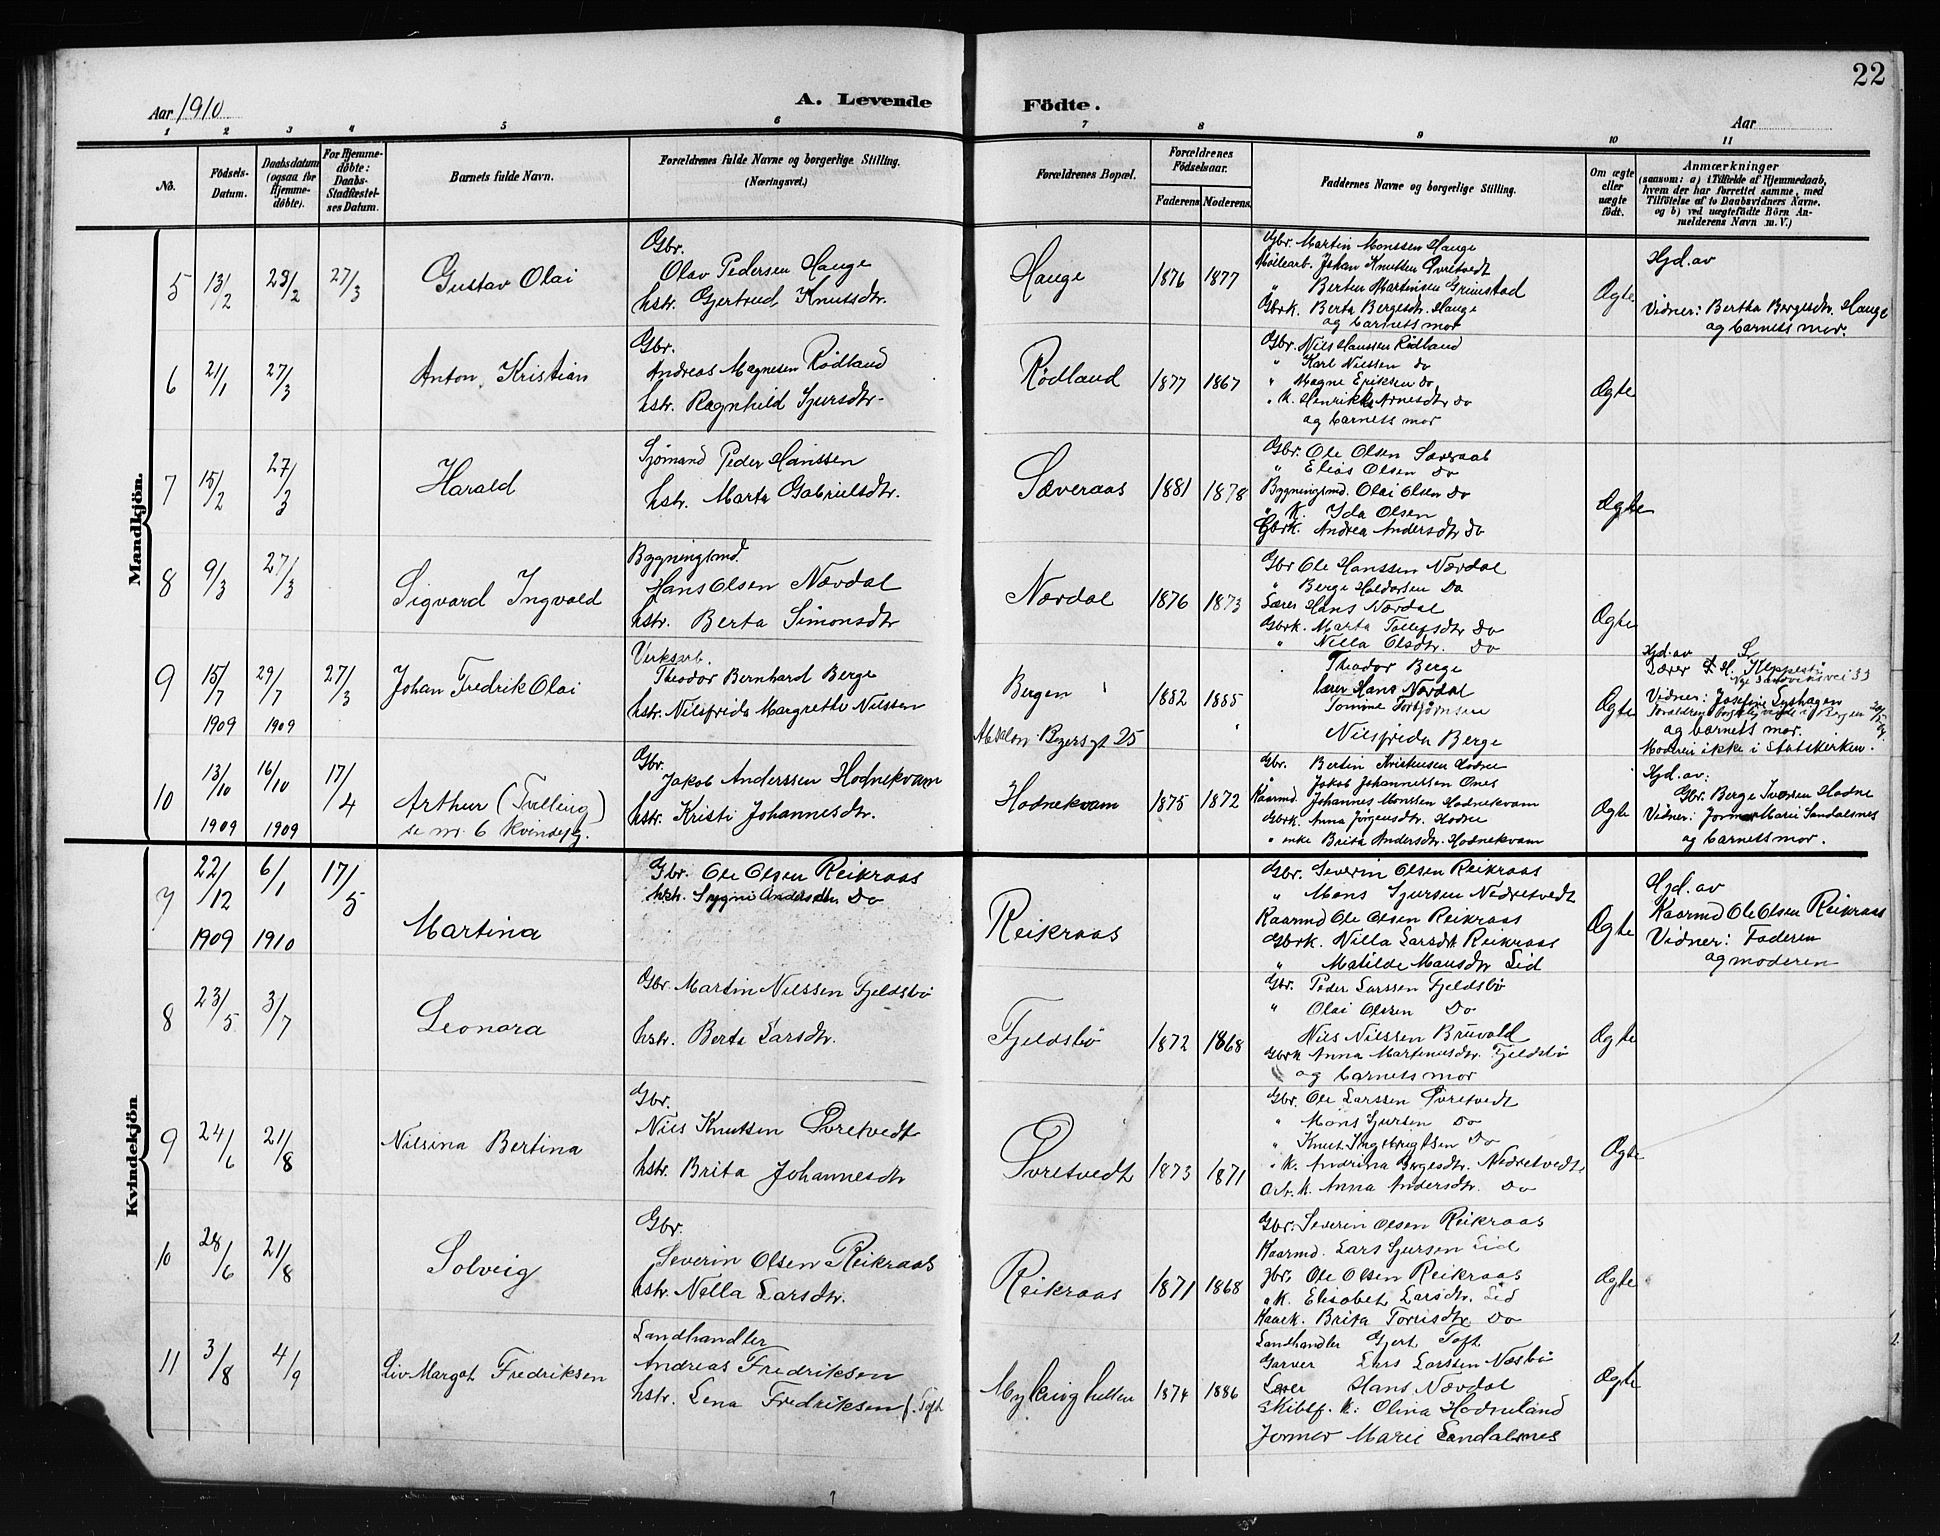 22
Aar 1910
A. Levende
Födte.
Aar
1 2 3 4 5 6 7 8 9 10 11
No.
Födsels-
Datum.
Daabsdatum
(ogsaa for
Hjemme-
döbte).
For Hjemme-
döbte:
Daabs-
Stadfæstel-
ses Datum.
Barnets fulde Navn.
Forældrenes fulde Navne og borgerlige Stilling.
(Næringsvei.)
Forældrenes Bopæl.
Forældrenes
Födselsaar.
Faderens
Moderens.
Faddernes Navne og borgerlige Stilling.
Om ægte
eller
uægte
födt.
Anmærkninger
(saasom: a) i Tilfælde af Hjemmedaab,
hvem der har forrettet samme, med
Tilföielse af to Daabsvidners Navne.
og b) ved uægtefödte Börn An-
melderens Navn m. V.)
Mandkjön.
5 13/2 23/2 27/3
Gustav Olai
Gbr.
Olav Pedersen Hauge
hstr. Gjertrud Knutsdtr.
Hauge
1876 1877
Gbr. Martin Monssen Hauge
Møllearb. Johan Knutsen Øvretvedt
" Bertin Martinsen Grimstad
Gbrk. Berta Bergesdtr. Hauge
og barnets mor
Ægte
Hjd. av
Vidner: Bertha Bergesdtr. Hauge
og barnets mor.
6 21/1 27/3
Anton Kristian
Gbr.
Andreas Magnesen Rødland
hstr. Ragnhild Sjursdtr.
Rødland
1877 1867
Gbr. Nils Hanssen Rødland
" Karl Nilssen do
" Magne Eriksen do
" K. Henrikke Arnesdtr do
og barnets mor
Ægte
7 15/2 27/3
Harald
Sjømand Peder Hanssen
hstr. Marta Gabrielsdtr.
Sæveraas
1881 1878
Gbr. Ole Olsen Sæveraas
" Elias Olsen do
Bygningsmd. Olai Olsen do
" K. Ida Olsen
Gbrk. Andrea Andersdtr do
Ægte
8 9/3 27/3
Sigvard Ingvald
Bygningsmd.
Hans Olsen Nævdal
hstr. Berta Simonsdtr
Nævdal
1876 1873
Gbr Ole Hanssen Nævdal
" Berge Haldorsen Do
Lærer Hans Nævdal
Gbrk. Marta Tollefsdtr Do
" Nilla Olsdtr. Do
Ægte
9 15/7 29/7 27/3
1909 1909
Johan Fredrik Olai
Verksarb.
Theodor Bernhard Berge
hstr. Nilsfrida Margrethe Nilssen
Bergen
Absalon Beyersgt 25
1882 1885
Theodor Berge
Lærer Hans Nævdal
Nilsfrida Berge
Ægte
Hjd. av
Lærer
Nye Sandviksvei 33
Vidner: Josefine
og barnets mor.
Moderen ikke i Statskirken.
10 13/10 16/10 17/4
1909 1909
Arthur (Tvilling)
se nr. 6 kvindekj.
Gbr.
Jakob Anderssen Hodnekvam
hstr. Kristi Johannesdtr.
Hodnekvam
1875 1872
Gbr. Bertin Kristensen Hodne
" Jakob Johannessen Ones
Kaarmd. Johannes Monssen Hodnekvam
Gbrk. Anna Jørgensdtr. Hodne
" enke Brita Andersdtr. Hodnekvam
Ægte
Hjd. av:
Gbr. Berge Iversen Hodne
Vidner: Jormor Marie Sandalsnes
og barnets mor.
Kvindekjön
7 22/12 6/1 17/5
1909 1910
Martina
Gbr. Ole Olsen Reikraas
hstr. Sygni Andersdtr Do
Reikraas
Gbr. Severin Olsen Reikraas
" Mons Sjursen Nedretvedt
Kaarmd Ole Olsen Reikraas
Gbrk. Nilla Larsdtr Reikraas
" Matilde Monsdtr Lid
Ægte
Hjd. av
Kaarmd Ole Olsen Reikraas
Vidner: Faderen
og moderen
8 23/5 3/7
Leonora
Gbr. Martin Nilssen Fjeldsbø
hstr. Berta Larsdtr.
Fjeldsbø
1872 1868
Gbr. Peder Larssen Fjeldsbø
" Olai Olssen Do
Nils Nilssen Bruvold
Gbrk Anna Martinusdtr. Fjeldsbø
og barnets mor
Ægte
9 24/6 21/8
Nilsina Bertina
Gbr.
Nils Knutsen Øvretvedt
hstr. Brita Johannesdtr
Øvretvedt
1873 1871
Gbr. Ole Larssen Øvretvedt
" Mons Sjursen Do
" Knut Ingebrigtsen Do
" K. Andrina Bergesdtr. Nedretvedt
Arb. K. Anna Andersdtr. Do
Ægte
10 28/6 21/8
Solveig
Gbr.
Severin Olsen Reikraas
hstr. Nilla Larsdtr.
Reikraas
1871 1868
Gbr. Severin Olsen Reikraas
Kaarmd. Lars Sjursen Lid
Gbr. Ole Olsen Reikraas
" K. Elisabet Larsdtr. Lid
Kaark. Brita Torrisdtr Do
Ægte
11 3/8 4/9
Liv Margot Fredriksen
Landhandler
Andreas Fredriksen
hstr. Lena Fredriksen f. Toft
Myking hulten
1874 1886
Landhandler Gjert Toft
Garver Lars Larssen Næsbø
Lærer Hans Nævdal
Skibsf. K: Olina Hodneland
Jormor Marie Sandalsnes
Ægte